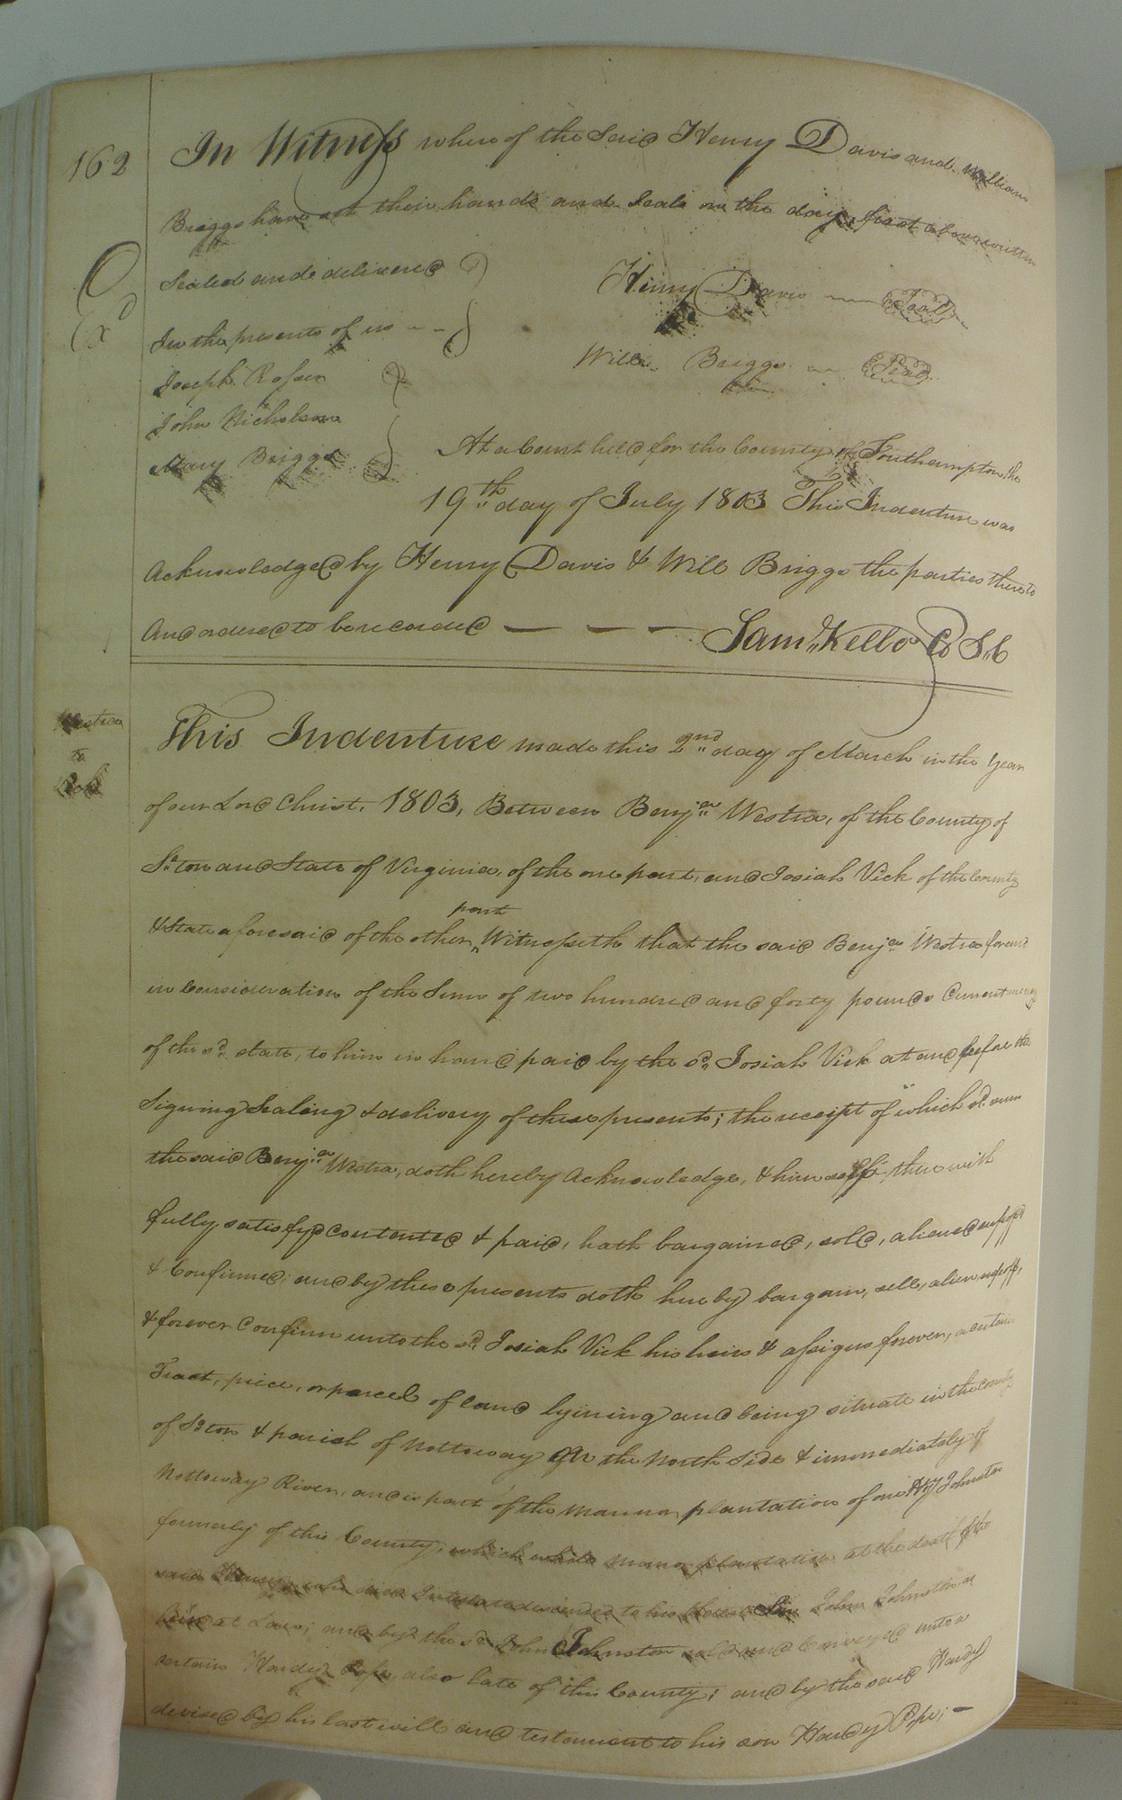 162
In Witness where of the Said Henry Davis and William
Briggs have set their hands and Seals on the day first above written
Sealed and delivered
Henry Davis Seal
In the presents of us
Ex'd
Will Briggs Seal
Joseph
John Nicholson
Mary Briggs
At a Court held for the County of Southampton the
19th day of July 1803 This Indenture was
Acknowledged by Henry Davis & Will Briggs the parties thereto
And ordered to be recorded — — — Saml Kello C S C
Westra
to
Vick
This Indenture made this 2nd day of March in the Year
of our Lord Christ. 1803, Between Benja Westra, of the County of
So ton and State of Virginia, of the one part, and Josiah Vick of the County
part
& State aforesaid of the other Witnesseth that the said Benja Westra for and
in Consideration of the Sum of two hundred and forty pounds Current money
of the sd state, to him in hand paid by the sd Josiah Vick at and before the
Signing Sealing & delivery of these presents; the receipt of which sd sum
the said Benja Westra, doth hereby Acknowledge, & himself therewith
fully satisfyd contented & paid, hath bargained, sold, aliened
& Confirmed; and by these presents doth hereby bargain, sell, alien
& forever Confirm unto the sd Josiah Vick his heirs & assigns forever, a certain
Tract, piece, or parcel of land lyining and being situate in the County
of So ton & parish of Nottoway on the North Side & immediately of
Nottoway River, and is part of the mannor plantation of one Hy Johnston
formerly of this County, which whole manor plantation at the death of the
said Henry who died Intestate descended to his Son John Johnston as
heir at Law; and by the sd John Johnston sold and Conveyed unto a
certain Hardy Pope, also late of this County; and by the said Hardy
devised by his last will and testament to his son Hardy Pope; —